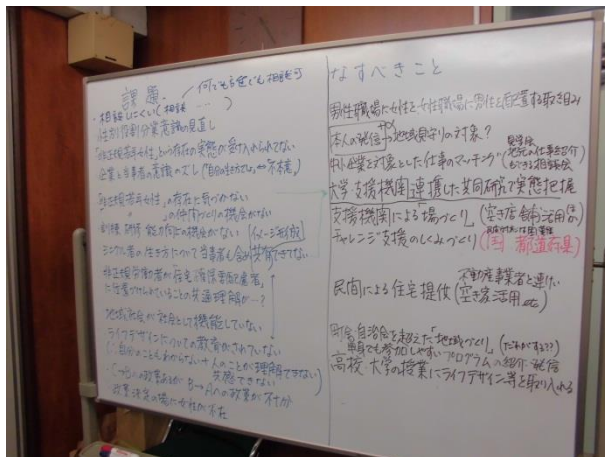 課題
何でも誰でも相談可
・相談しにくい(相談 … )
性別役割分業意識の見直し
「非正規若手女性」という存在の実態が受け入れられてない
企業と当事者の意識のズレ(「自分の生き方でしょ」⇔不本意)
「非正規若手女性」の存在に気づかない
〃 の仲間づくりの機会がない
研修 能力 の機会がない
シングル者の生き方について当事者も含め共有できてない
非正規労働者が住宅
に位置づけられていることの共通理解が…?
地域社会が社会として機能していない
ライフデザインについての教育がされていない
(∵自分のこともわからない+人のことが理解できない)
共感できない
C→Bへの政策あるがB→Aへの政策が不十分
政策決定の場に女性が不在
なすべきこと
男性職場に女性を・女性職場に男性を配置する取り組み
本人の発信 地域見守りの対象?
中小企業を対象とした仕事のマッチング
地元の仕事を紹介
もできる相談会
大学・支援機関 連携した共同研究で実態把握
支援機関による場づくり (空き店舗活用
チャレンジ支援のしくみづくり (国 都道府県)
不動産事業者と連けい
民間による住宅提供(空き家活用 etc)
町会、自治会を超えた「地域づくり」(だれがする??)
単身でも参加しやすいプログラムの紹介・発信
高校・大学の授業にライフデザイン等を取り入れる